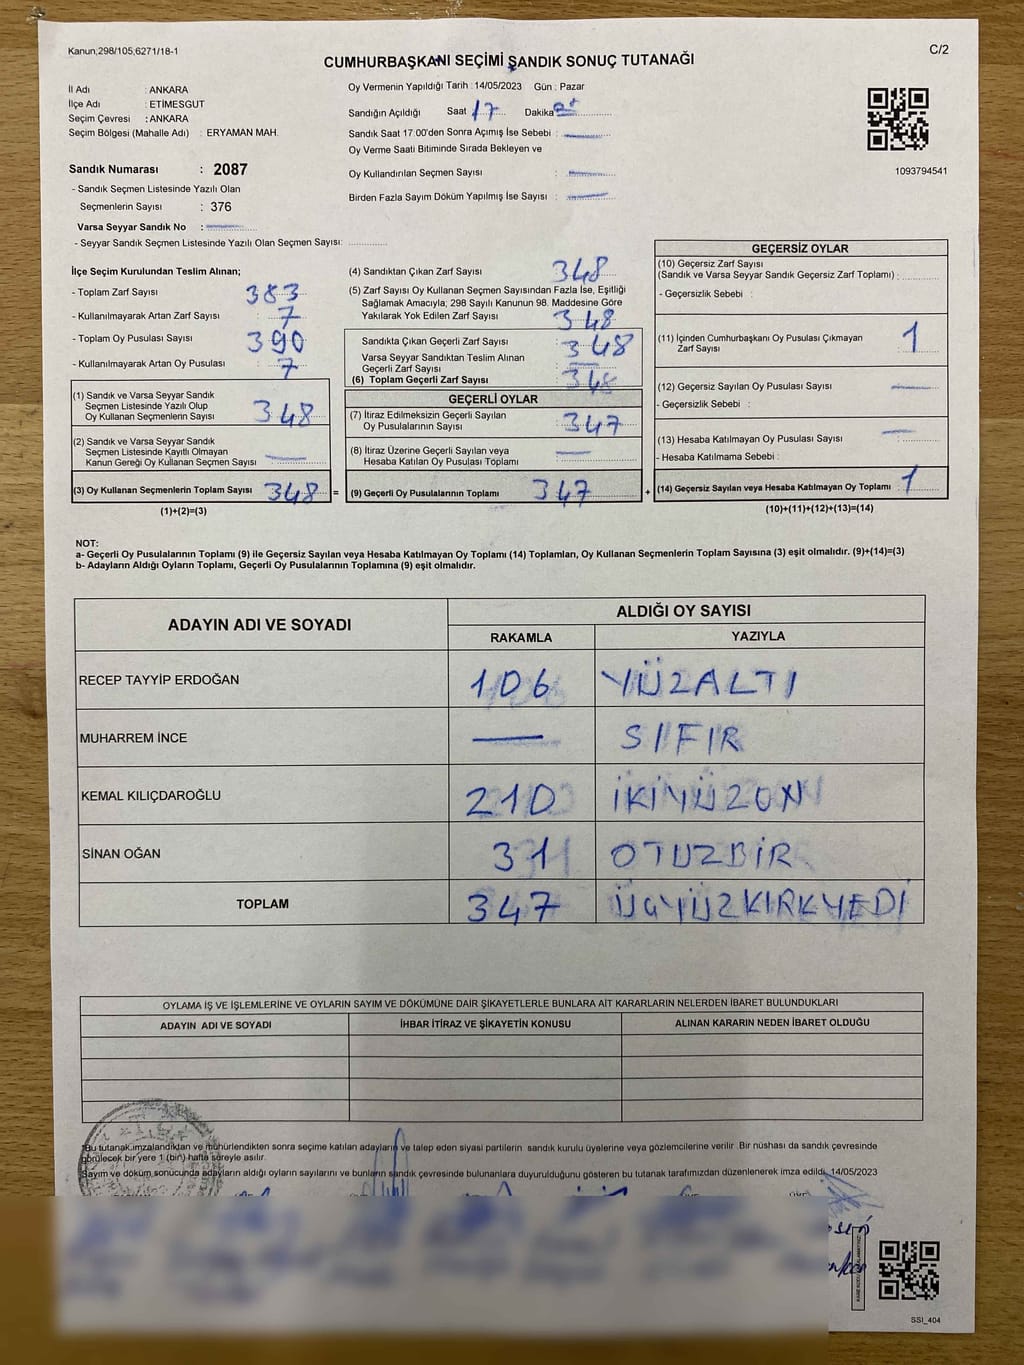 Kanun,298/105,6271/18-1
C/2
CUMHURBAŞKANI SEÇİMİ SANDIK SONUÇ TUTANAĞI
İl Adı : ANKARA
İlçe Adı : ETİMESGUT
Seçim Çevresi : ANKARA
Seçim Bölgesi (Mahalle Adı) : ERYAMAN MAH.
Sandık Numarası : 2087
- Sandık Seçmen Listesinde Yazılı Olan
Seçmenlerin Sayısı : 376
Varsa Seyyar Sandık No :
- Seyyar Sandık Seçmen Listesinde Yazılı Olan Seçmen Sayısı:
Oy Vermenin Yapıldığı Tarih : 14/05/2023 Gün : Pazar
Sandığın Açıldığı Saat 17 Dakika
Sandık Saat 17.00'den Sonra Açımış İse Sebebi :
Oy Verme Saati Bitiminde Sırada Bekleyen ve
Oy Kullandırılan Seçmen Sayısı :
Birden Fazla Sayım Döküm Yapılmış İse Sayısı :
1093794541
İlçe Seçim Kurulundan Teslim Alınan;
- Toplam Zarf Sayısı : 383
- Kullanılmayarak Artan Zarf Sayısı : 7
- Toplam Oy Pusulası Sayısı : 390
- Kullanılmayarak Artan Oy Pusulası : 7
(1) Sandık ve Varsa Seyyar Sandık
Seçmen Listesinde Yazılı Olup
Oy Kullanan Seçmenlerin Sayısı : 348
(2) Sandık ve Varsa Seyyar Sandık
Seçmen Listesinde Kayıtlı Olmayan
Kanun Gereği Oy Kullanan Seçmen Sayısı :
(3) Oy Kullanan Seçmenlerin Toplam Sayısı 348 =
(1)+(2)=(3)
(4) Sandıktan Çıkan Zarf Sayısı : 348
(5) Zarf Sayısı Oy Kullanan Seçmen Sayısından Fazla İse, Eşitliği
Sağlamak Amacıyla; 298 Sayılı Kanunun 98. Maddesine Göre
Yakılarak Yok Edilen Zarf Sayısı : 348
Sandıkta Çıkan Geçerli Zarf Sayısı : 348
Varsa Seyyar Sandıktan Teslim Alınan
Geçerli Zarf Sayısı :
(6) Toplam Geçerli Zarf Sayısı : 348
GEÇERLİ OYLAR
(7) İtiraz Edilmeksizin Geçerli Sayılan
Oy Pusulalarının Sayısı : 347
(8) İtiraz Üzerine Geçerli Sayılan veya
Hesaba Katılan Oy Pusulası Toplamı :
(9) Geçerli Oy Pusulalarının Toplamı : 347 +
GEÇERSİZ OYLAR
(10) Geçersiz Zarf Sayısı
(Sandık ve Varsa Seyyar Sandık Geçersiz Zarf Toplamı) :
- Geçersizlik Sebebi :
(11) İçinden Cumhurbaşkanı Oy Pusulası Çıkmayan
Zarf Sayısı : 1
(12) Geçersiz Sayılan Oy Pusulası Sayısı :
- Geçersizlik Sebebi :
(13) Hesaba Katılmayan Oy Pusulası Sayısı :
- Hesaba Katılmama Sebebi :
(14) Geçersiz Sayılan veya Hesaba Katılmayan Oy Toplamı : 1
(10)+(11)+(12)+(13)=(14)
NOT:
a- Geçerli Oy Pusulalarının Toplamı (9) ile Geçersiz Sayılan veya Hesaba Katılmayan Oy Toplamı (14) Toplamları, Oy Kullanan Seçmenlerin Toplam Sayısına (3) eşit olmalıdır. (9)+(14)=(3)
b- Adayların Aldığı Oyların Toplamı, Geçerli Oy Pusulalarının Toplamına (9) eşit olmalıdır.
ADAYIN ADI VE SOYADI ALDIĞI OY SAYISI
RAKAMLA YAZIYLA
RECEP TAYYİP ERDOĞAN 106 YÜZALTI
MUHARREM İNCE — SIFIR
KEMAL KILIÇDAROĞLU 210 İKİYÜZON
SİNAN OĞAN 31 OTUZBİR
TOPLAM 347 ÜÇYÜZKIRKYEDİ
OYLAMA İŞ VE İŞLEMLERİNE VE OYLARIN SAYIM VE DÖKÜMÜNE DAİR ŞİKAYETLERLE BUNLARA AİT KARARLARIN NELERDEN İBARET BULUNDUKLARI
ADAYIN ADI VE SOYADI İHBAR İTİRAZ VE ŞİKAYETİN KONUSU ALINAN KARARIN NEDEN İBARET OLDUĞU
*Bu tutanak imzalandıktan ve mühürlendikten sonra seçime katılan adayların ve talep eden siyasi partilerin sandık kurulu üyelerine veya gözlemcilerine verilir. Bir nüshası da sandık çevresinde
görülecek bir yere 1 (bir) hafta süreyle asılır.
Sayım ve döküm sonucunda adayların aldığı oyların sayılarını ve bunların sandık çevresinde bulunanlara duyurulduğunu gösteren bu tutanak tarafımızdan düzenlenerek imza edildi. 14/05/2023
SSI_404